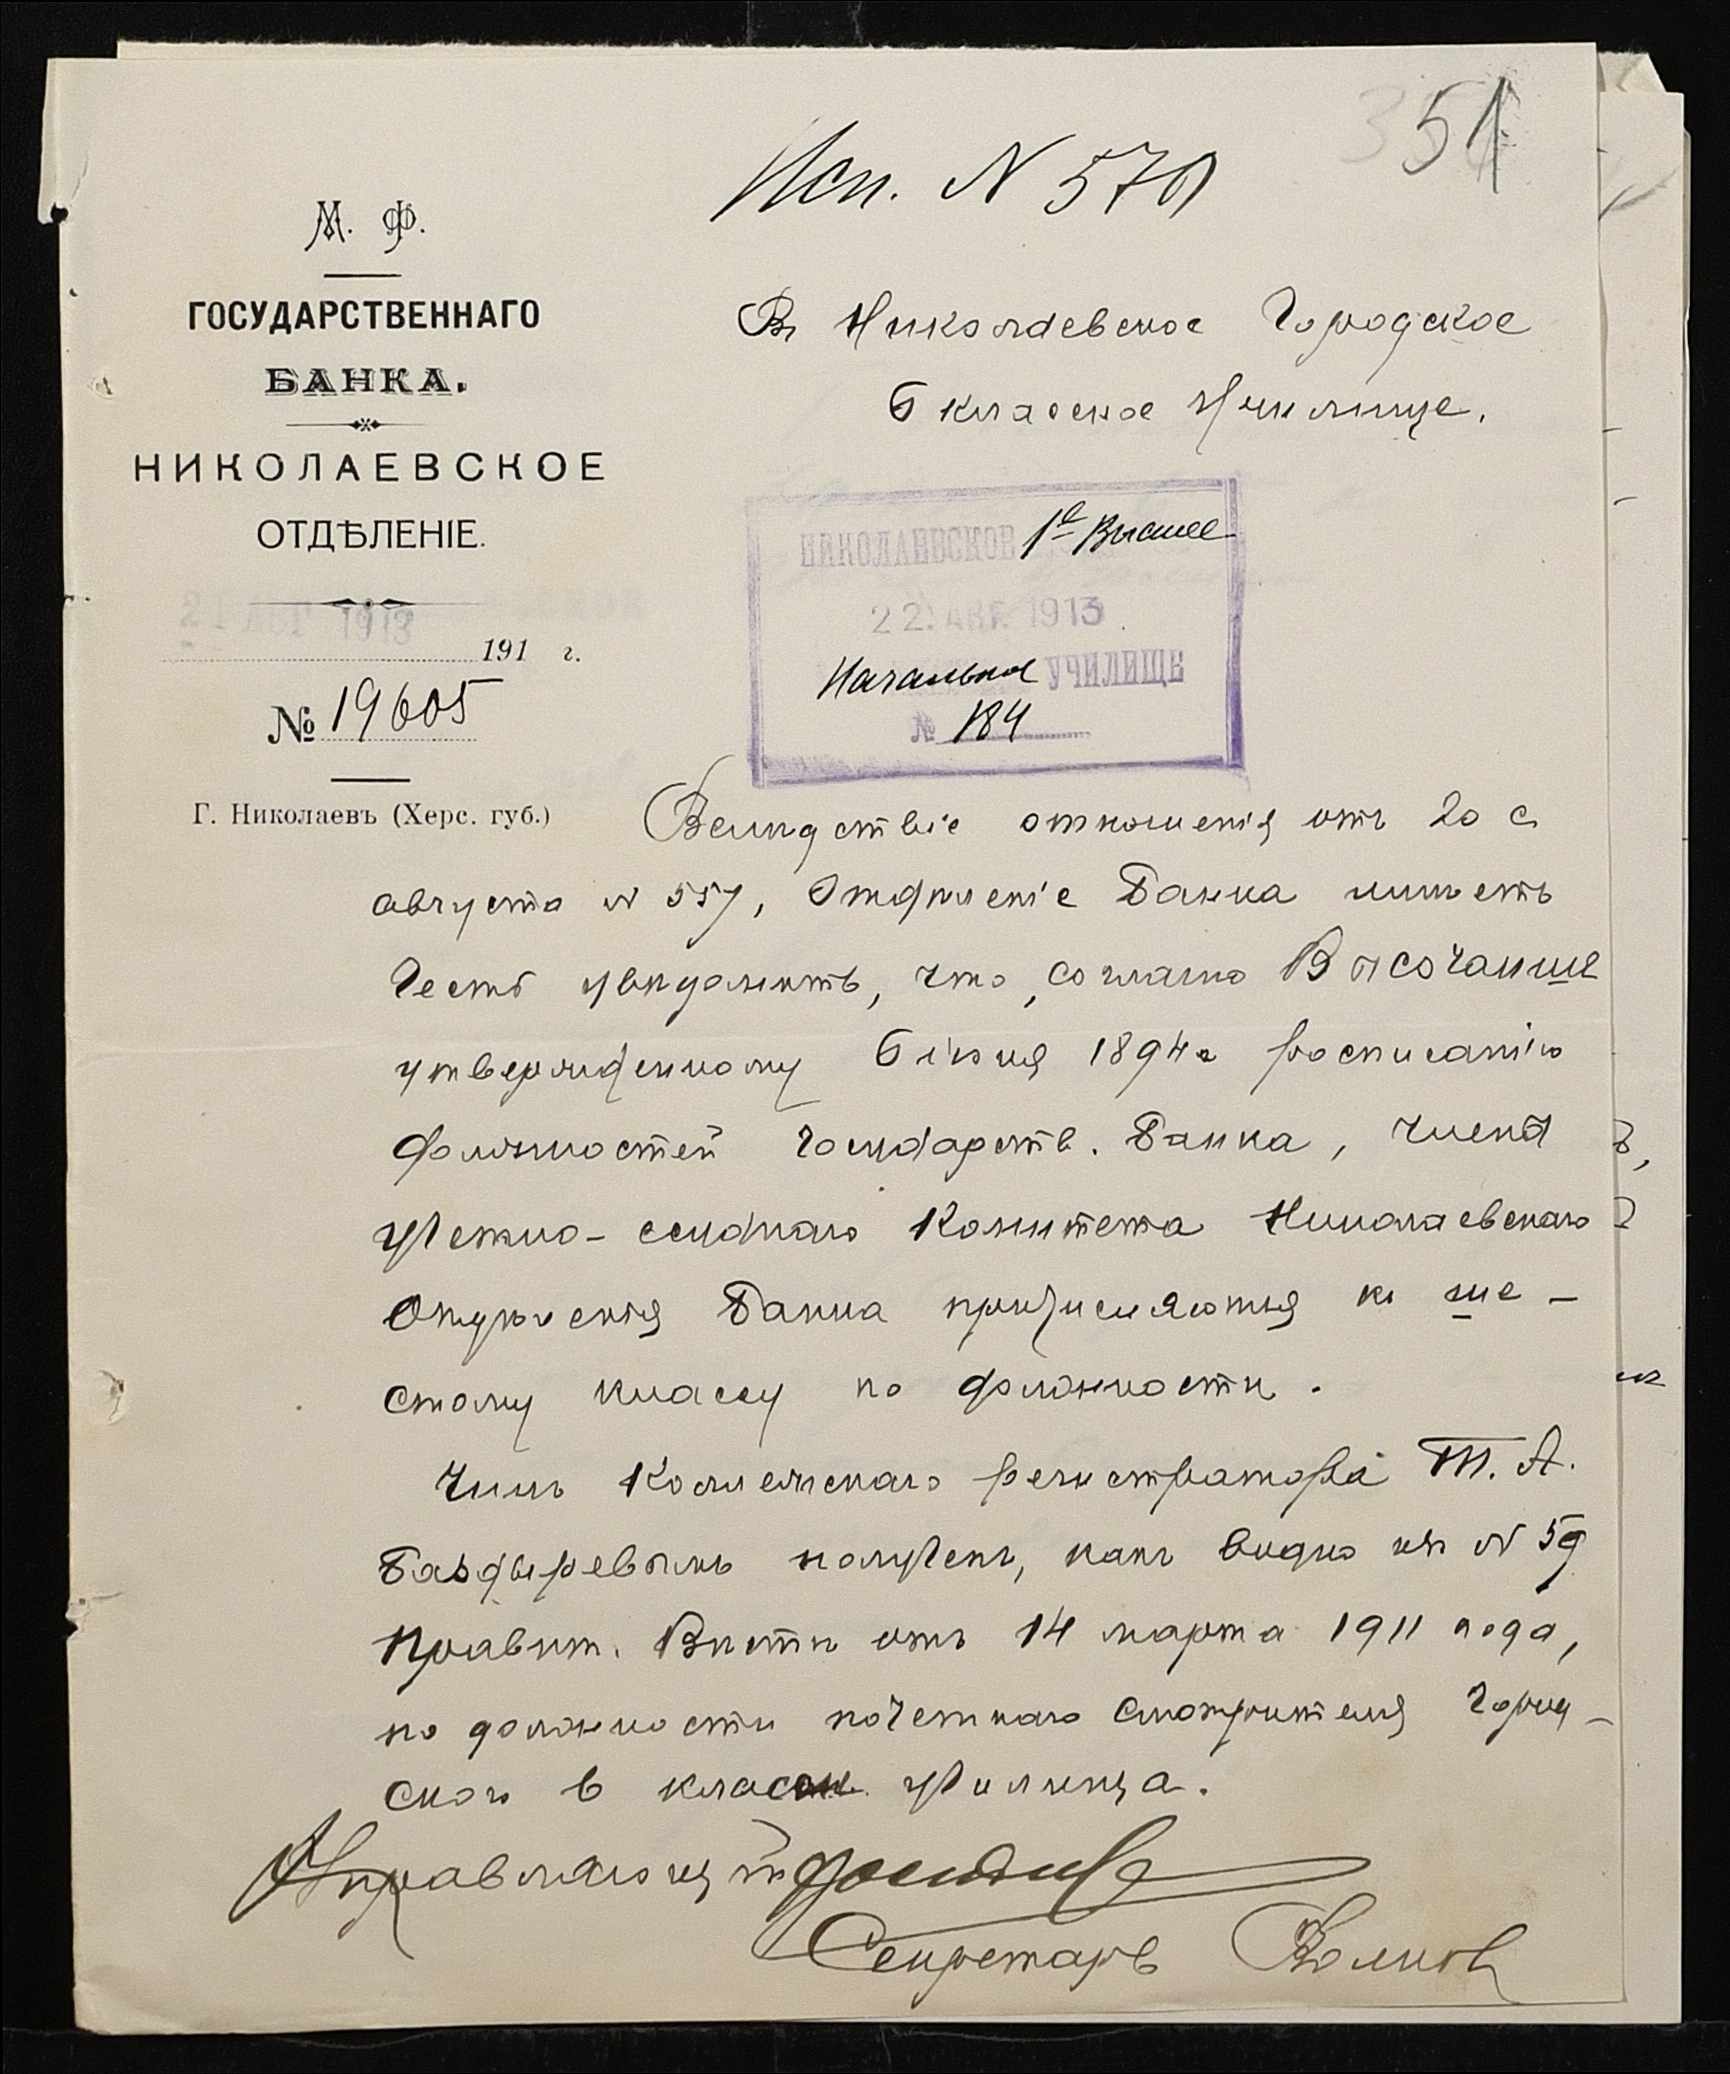 51
Исп. N 570
М. Ф.
ГОСУДАРСТВЕННАГО
БАНКА.
НИКОЛАЕВСКОЕ
ОТДѢЛЕНІЕ.
21 АВГ 1913
191 г.
№ 19605
Г. Николаевъ (Херс. губ.)
Въ Николаевское Городское
6 классное Училище.
НИКОЛАЕВСКОЕ 1е Высшее
22 АВГ. 1913
Начальное УЧИЛИЩЕ
№ 184
Вслѣдствіе отношенія отъ 20 с.
августа N 557, Отдѣленіе Банка имѣетъ
честь увѣдомить, что, согласно Высочайше
утвержденному 6 іюня 1894 г росписанію
должностей Государств. Банка, члены
учетно-ссуднаго Комитета Николаевскаго
Отдѣленія Банка причисляются къ ше-
стому классу по должности.
Чинъ Коллежскаго регистратора Т. А.
Баздыревымъ полученъ, какъ видно изъ N 59
Правит. Вѣстн отъ 14 марта 1911 года,
по должности почетнаго смотрителя Город-
ского 6 классн. училища.
Управляющій
Секретарь Волковъ